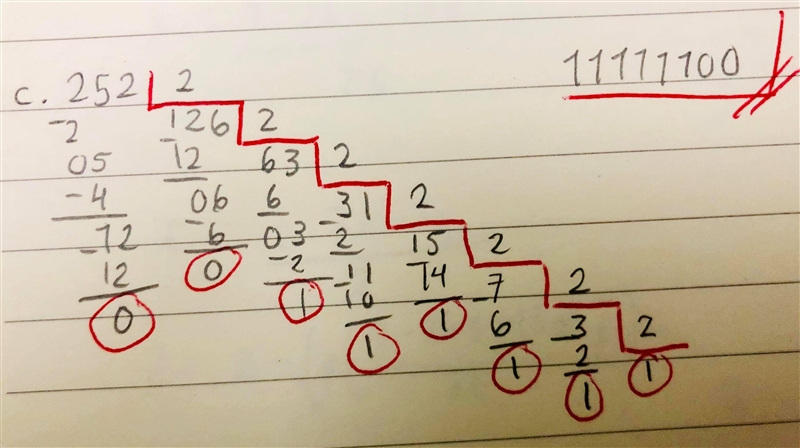 c. 252 2 11111100
-2 126 2
05 -12 63 2
-4 06 6 -31 2
-12 -6 03 2 15 2
12 0 -2 -11 -14 -7 2
0 1 10 1 6 -3 2
1 1 2 1
1